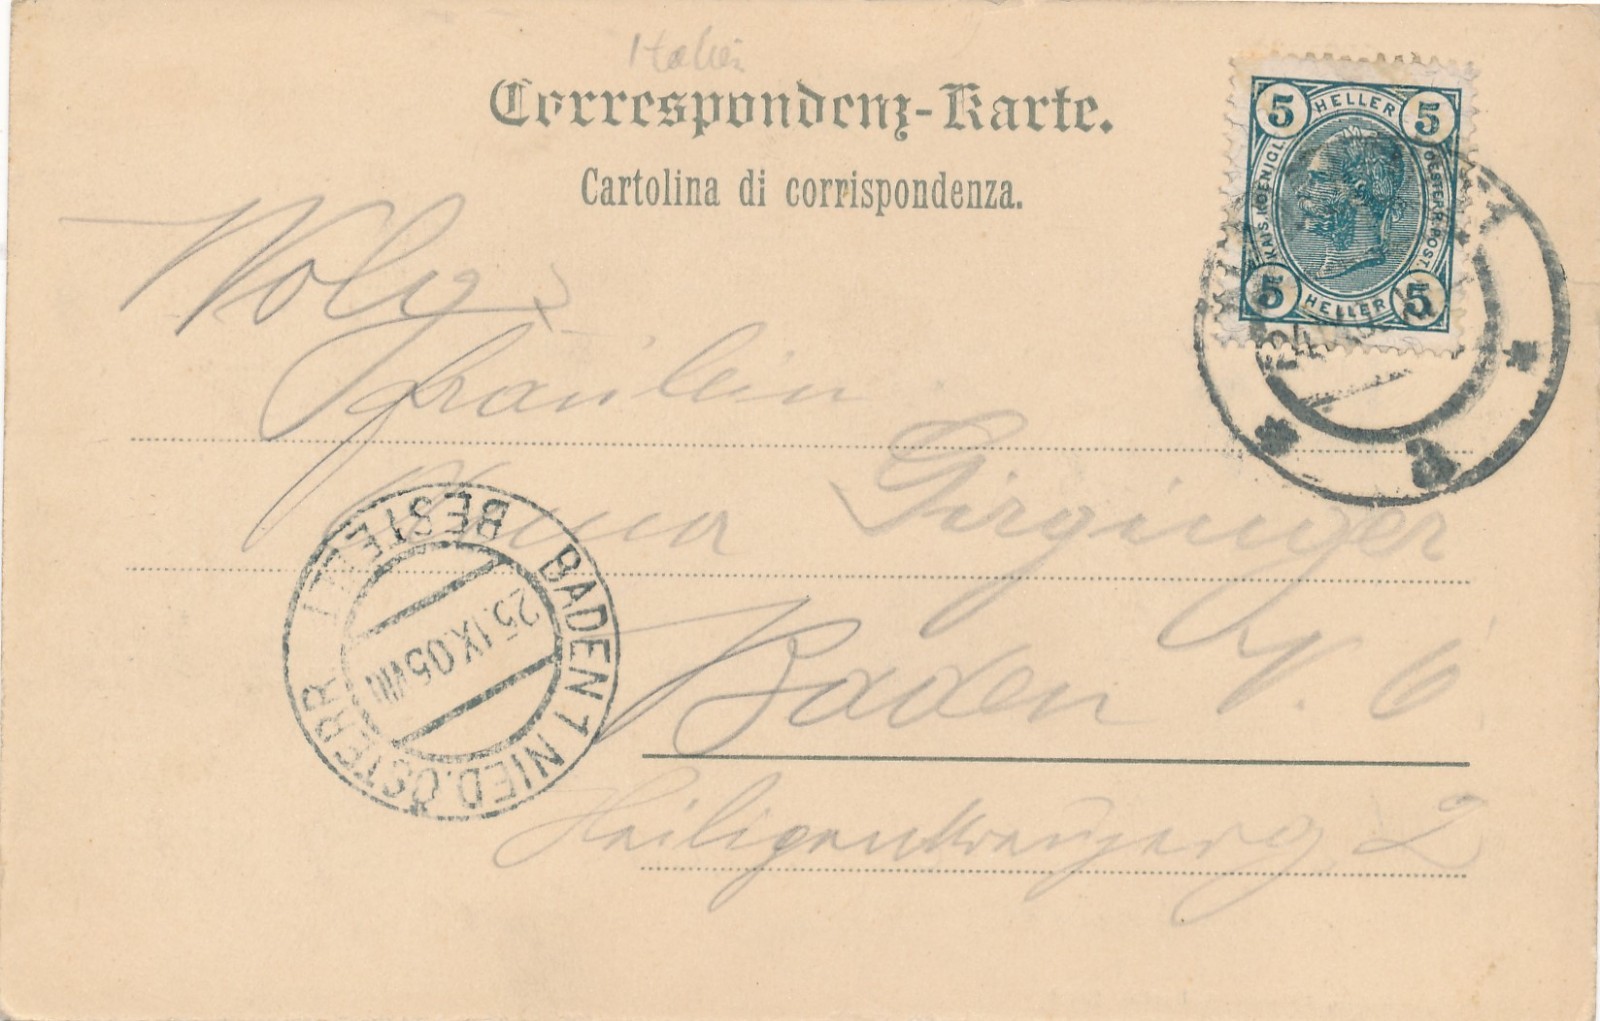 Italien
Correspondenz-Karte.
Cartolina di corrispondenza.
5 HELLER 5
KAIS. KOENIGL. OESTERR. POST.
5 HELLER 5
Wolg.
Fräulein
Anna Girginger
Baden N. Ö
Heiligenkreuzerg 2
BADEN 1 NIED. ÖSTERR
BESTELLT
25.IX.05 VIII
24
a